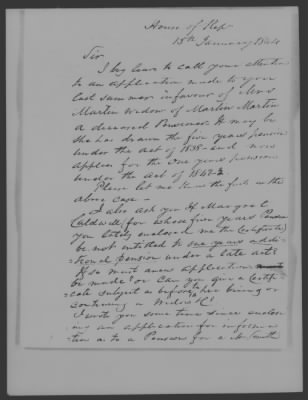 House of Rep
15th January 1844
Sir,
I beg leave to call your attention
to an application made to you
last summer in favour of Mrs
Martin widow of Martin Martin
a deceased Pensioner. It may be
She has drawn the five years pension
under the act of 1838 - and now
applies for the one years pension
under the act of 1842-3.
Please let me know the facts in the
above case -
I also ask you if Margret
Caldwell (for whose five years Pension
you lately enclosed me the Certificate)
be not entitled to one years addi-
tional pension under a late act?
If so must a new application
be made or can you give a Certifi-
cate subject as before to her being or
continuing a Widow &c?
I wrote you some time since enclos-
ing an application for informa-
tion as to a Pension for a Mr Smith